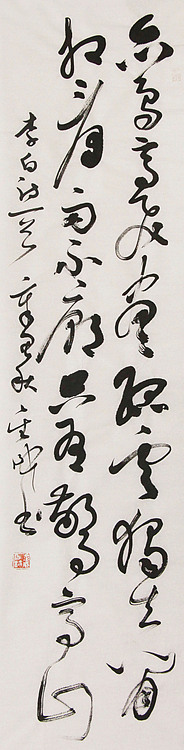 眾鳥高飛盡孤雲獨去閒
相看兩不厭只有敬亭山
李白詩一首 秋 書